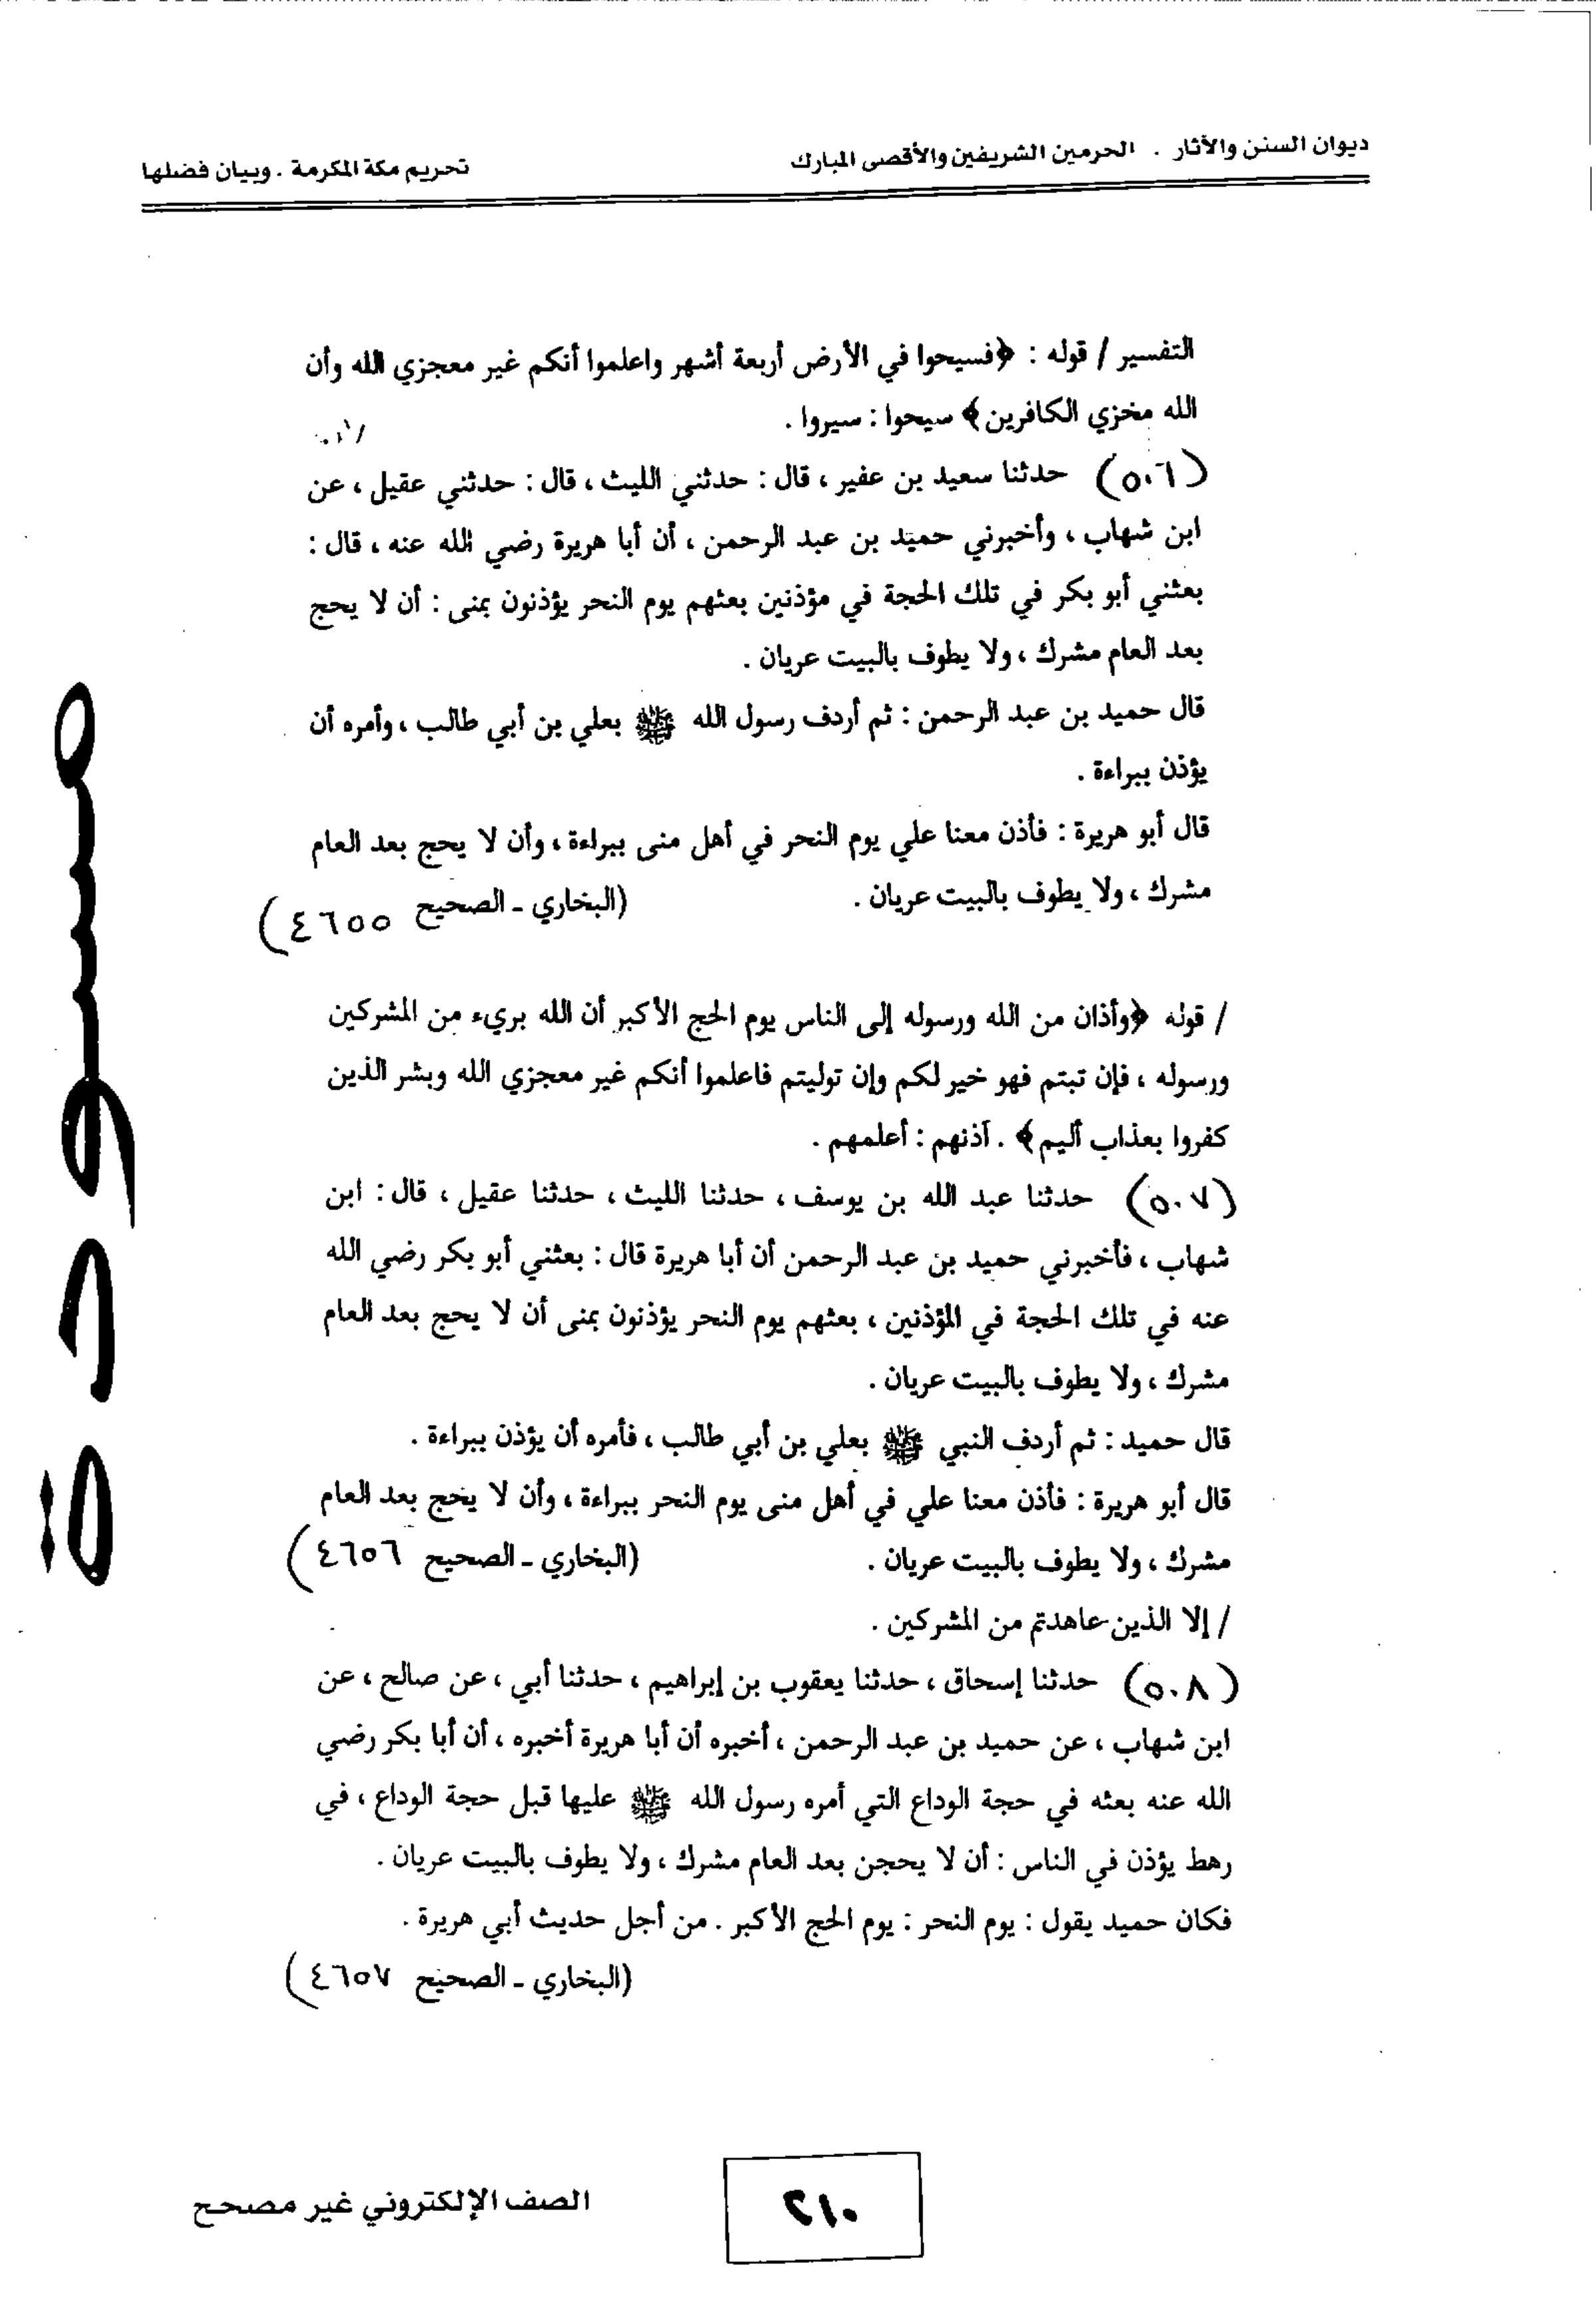 ديوان السنن والآثار . الحرمين الشريفين والأقصى المبارك
تحريم مكة المكرمة . وبيان فضلها
التفسير / قوله : ﴿فسيحوا في الأرض أربعة أشهر واعلموا أنكم غير معجزي الله وأن
الله مخزي الكافرين﴾ سيحوا : سيروا .
(٥٠٦) حدثنا سعيد بن عفير ، قال : حدثني الليث ، قال : حدثني عقيل ، عن
ابن شهاب ، وأخبرني حميد بن عبد الرحمن ، أن أبا هريرة رضي الله عنه ، قال :
بعثني أبو بكر في تلك الحجة في مؤذنين بعثهم يوم النحر يؤذنون بمنى : أن لا يحج
بعد العام مشرك ، ولا يطوف بالبيت عريان .
قال حميد بن عبد الرحمن : ثم أردف رسول الله ﷺ بعلي بن أبي طالب ، وأمره أن
يؤذن ببراءة .
قال أبو هريرة : فأذن معنا علي يوم النحر في أهل منى ببراءة ، وأن لا يحج بعد العام
مشرك ، ولا يطوف بالبيت عريان . (البخاري ـ الصحيح ٤٦٥٥)
/ قوله ﴿وأذان من الله ورسوله إلى الناس يوم الحج الأكبر أن الله بريء من المشركين
ورسوله ، فإن تبتم فهو خير لكم وإن توليتم فاعلموا أنكم غير معجزي الله وبشر الذين
كفروا بعذاب أليم﴾ . آذنهم : أعلمهم .
(٥٠٧) حدثنا عبد الله بن يوسف ، حدثنا الليث ، حدثنا عقيل ، قال : ابن
شهاب ، فأخبرني حميد بن عبد الرحمن أن أبا هريرة قال : بعثني أبو بكر رضي الله
عنه في تلك الحجة في المؤذنين ، بعثهم يوم النحر يؤذنون بمنى أن لا يحج بعد العام
مشرك ، ولا يطوف بالبيت عريان .
قال حميد : ثم أردف النبي ﷺ بعلي بن أبي طالب ، فأمره أن يؤذن ببراءة .
قال أبو هريرة : فأذن معنا علي في أهل منى يوم النحر ببراءة ، وأن لا يحج بعد العام
مشرك ، ولا يطوف بالبيت عريان . (البخاري ـ الصحيح ٤٦٥٦)
/ إلا الذين عاهدتم من المشركين .
(٥٠٨) حدثنا إسحاق ، حدثنا يعقوب بن إبراهيم ، حدثنا أبي ، عن صالح ، عن
ابن شهاب ، عن حميد بن عبد الرحمن ، أخبره أن أبا هريرة أخبره ، أن أبا بكر رضي
الله عنه بعثه في حجة الوداع التي أمره رسول الله ﷺ عليها قبل حجة الوداع ، في
رهط يؤذن في الناس : أن لا يحجن بعد العام مشرك ، ولا يطوف بالبيت عريان .
فكان حميد يقول : يوم النحر : يوم الحج الأكبر . من أجل حديث أبي هريرة .
(البخاري ـ الصحيح ٤٦٥٧)
مسودة
٢١٠
الصف الإلكتروني غير مصحح